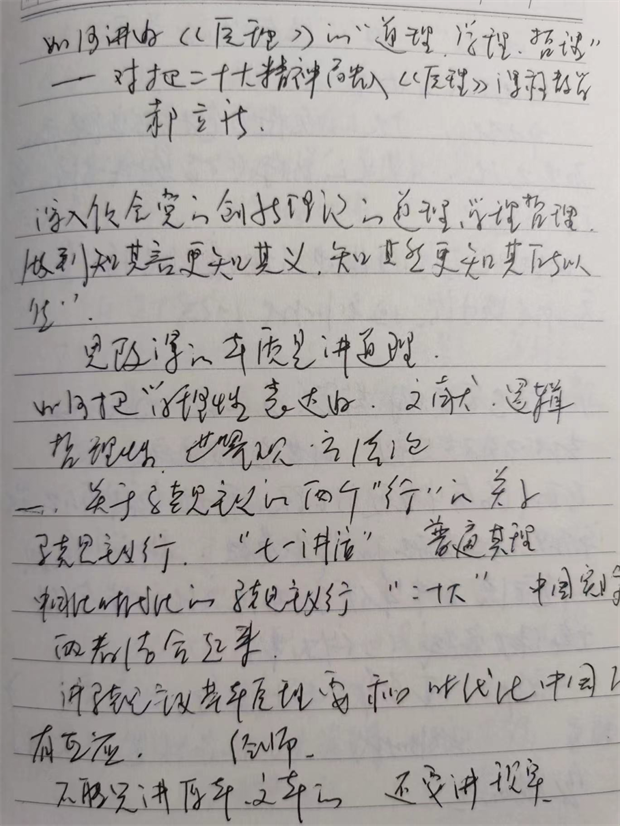 如何讲好《《原理》》的“道理、学理、哲理”
——对把二十大精神融入《《原理》》课的教学
郝立新.
深入领会党的创新理论的道理、学理、哲理.
做到知其言更知其义,知其然更知其所以
然”.
思政课的本质是讲道理.
如何把“学理性表达好.文献.逻辑
哲理性 世界观.方法论
一、关于马克思主义的两个“行”的关系
马克思主义行.“七一讲话” 普遍真理
中国化时代化的马克思主义行“二十大” 中国实际
两者结合起来.
讲马克思主义基本原理要和时代化中国化
有互应.
不能只讲原本、文本的 还要讲现实.